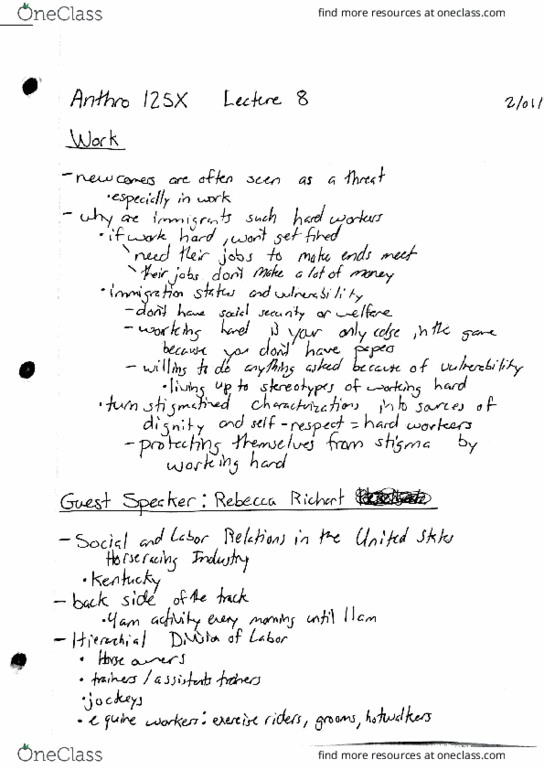 OneClass find more resources at oneclass.com
Anthro 125X Lecture 8
Work
- newcomers are often seen as a threat
• especially in work
- why are immigrants such hard workers
• if work hard, won't get fired
\ need their jobs to make ends meet
\ their jobs don't make a lot of money
• immigration status and vulnerability
- don't have social security or welfare
- working hard is your only edge in the game
because you don't have papers
- willing to do anything asked because of vulnerability
• living up to stereotypes of working hard
• turn stigmatized characterizations into sources of
dignity and self-respect = hard workers
- protecting themselves from stigma by
working hard
Guest Speaker: Rebecca Richart
- Social and Labor Relations in the United States
Horseracing Industry
• Kentucky
- back side of the track
• 4am activity every morning until 11am
- Hierachial Division of Labor
• Horse owners
• trainers/assistants trainers
• jockeys
• equine workers: exercise riders, grooms, hotwalkers
OneClass find more resources at oneclass.com